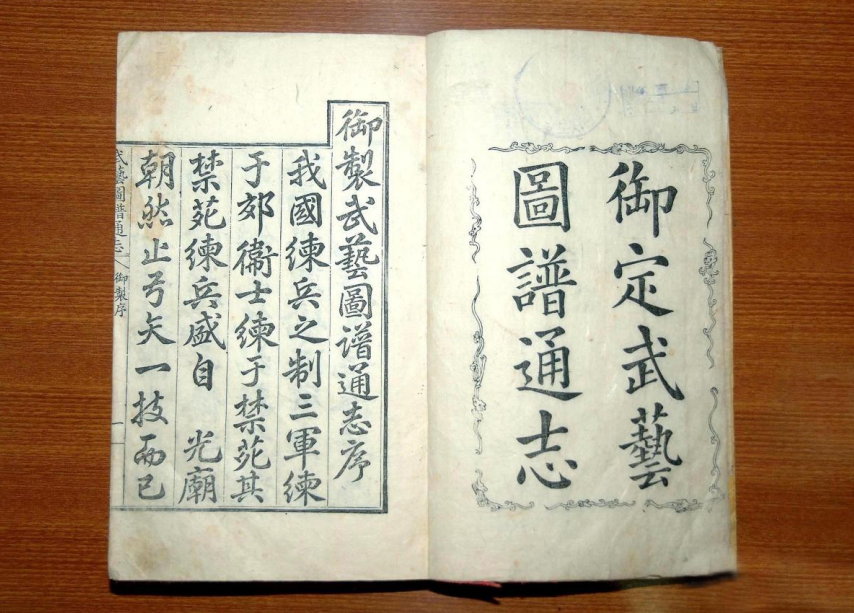 御定武藝
圖譜通志
御製武藝圖譜通志序
我國練兵之制三軍練
于郊衛士練于禁苑其
禁苑練兵盛自 光廟
朝然止弓矢一技而已
武藝圖譜通志 御製序 一